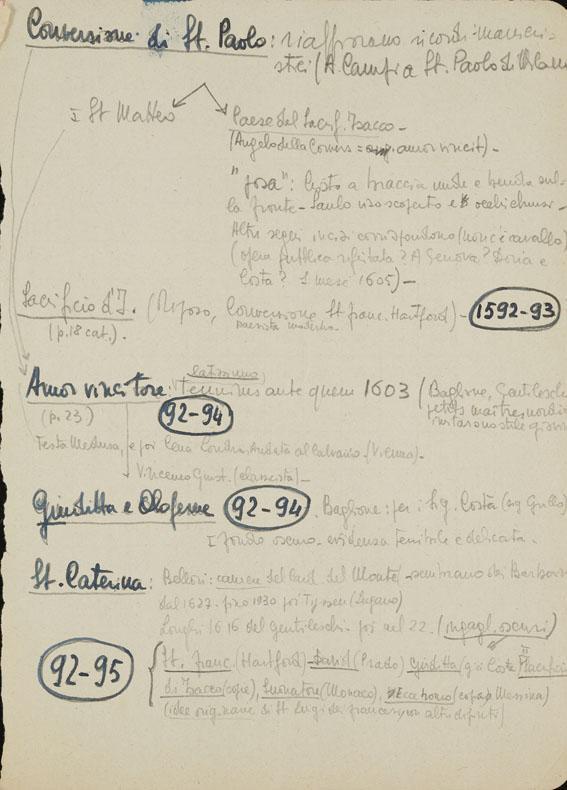 Conversione di St. Paolo: riaffiorano ricordi manieri-
stici (A. Campi a St. Paolo di Milano
I St Matteo
Paese del Sacrif. Isacco -
(Angelo della Convers = amor vincit) -
"posa": Cristo a braccia nude e benda sul-
la fronte - Saulo viso scoperto e occhi chiusi -
Altri segni incisi corrispondono (non c'è cavallo)
(opera pubblica rifiutata? A Genova? Doria e
Costa? I mesi 1605) -
Sacrificio d'I. (Riposo, Conversione, St franc. Hartford) - 1592-93
(p. 18 cat.). paesista moderna
latissimo
Amor vincitore: terminus ante quem 1603 (Baglione, Gentileschi
(p. 23) 92-94
Testa Medusa, e poi Cena Londra, Andata al Calvario (Vienna) -
Vincenzo Giust. (classicista) -
Giuditta e Oloferne 92-94 Baglione: per i sig. Costa (sig Grillo)
I fondo oscuro - evidenza terribile e delicata.
St. Caterina: Bellori: camere del Card. del Monte - sembrano dei Barberini
dal 1627 fino 1930 poi Tyssen (Lugano)
Longhi 1616 del Gentileschi poi nel 22. (ingagl. oscuri)
92-95
St. franc. (Hartford) - David (Prado) Giuditta (già Coste "Sacrificio
di Isacco (copie), Suonatore (Monaco), Ecce homo (copia Messina)
(idee origin. di St Luigi dei francesi con altri dipinti)